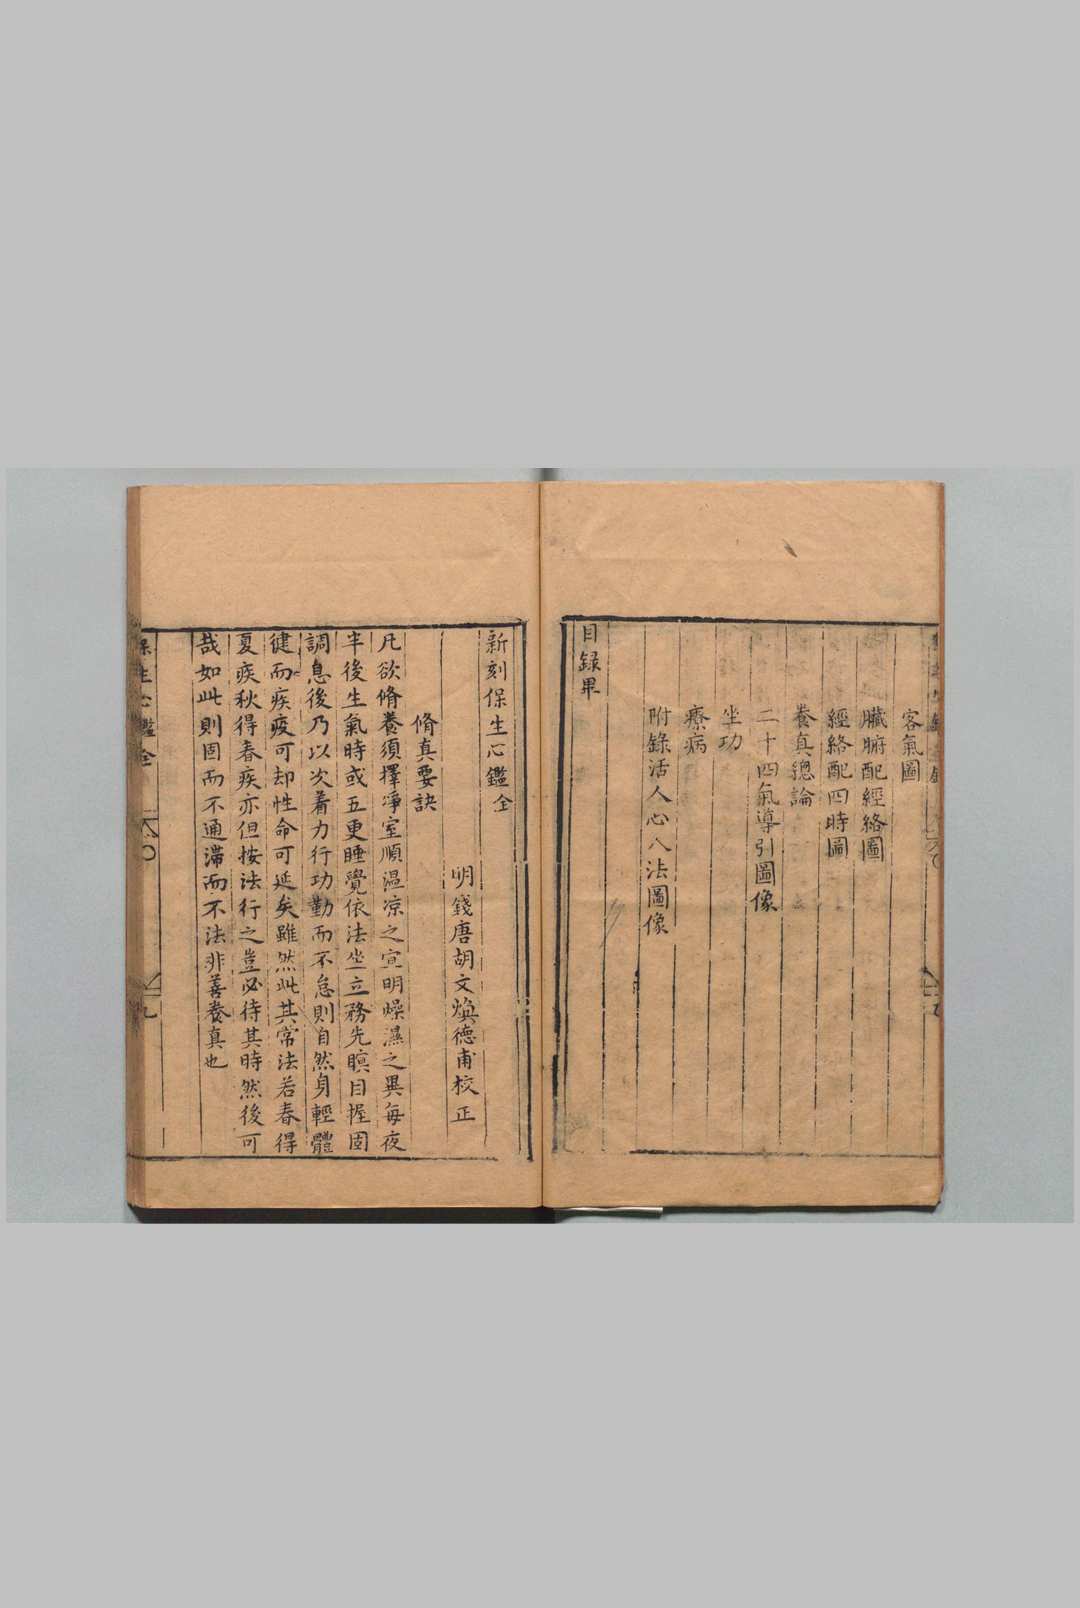 客氣圖
臟腑配經絡圖
經絡配四時圖
養真總論
二十四氣導引圖像
坐功
療病
附錄活人心八法圖像
目録畢
新刻保生心鑑全
明錢唐胡文煥德甫校正
脩真要訣
凡欲脩養須擇淨室順温凉之宜明燥濕之異每夜
半後生氣時或五更睡覺依法坐立務先瞑目握固
調息後乃以次着力行功勤而不怠則自然身輕體
健而疾疫可却性命可延矣雖然此其常法若春得
夏疾秋得春疾亦但按法行之豈必待其時然後可
哉如此則固而不通滯而不法非善養真也
保生心鑑全